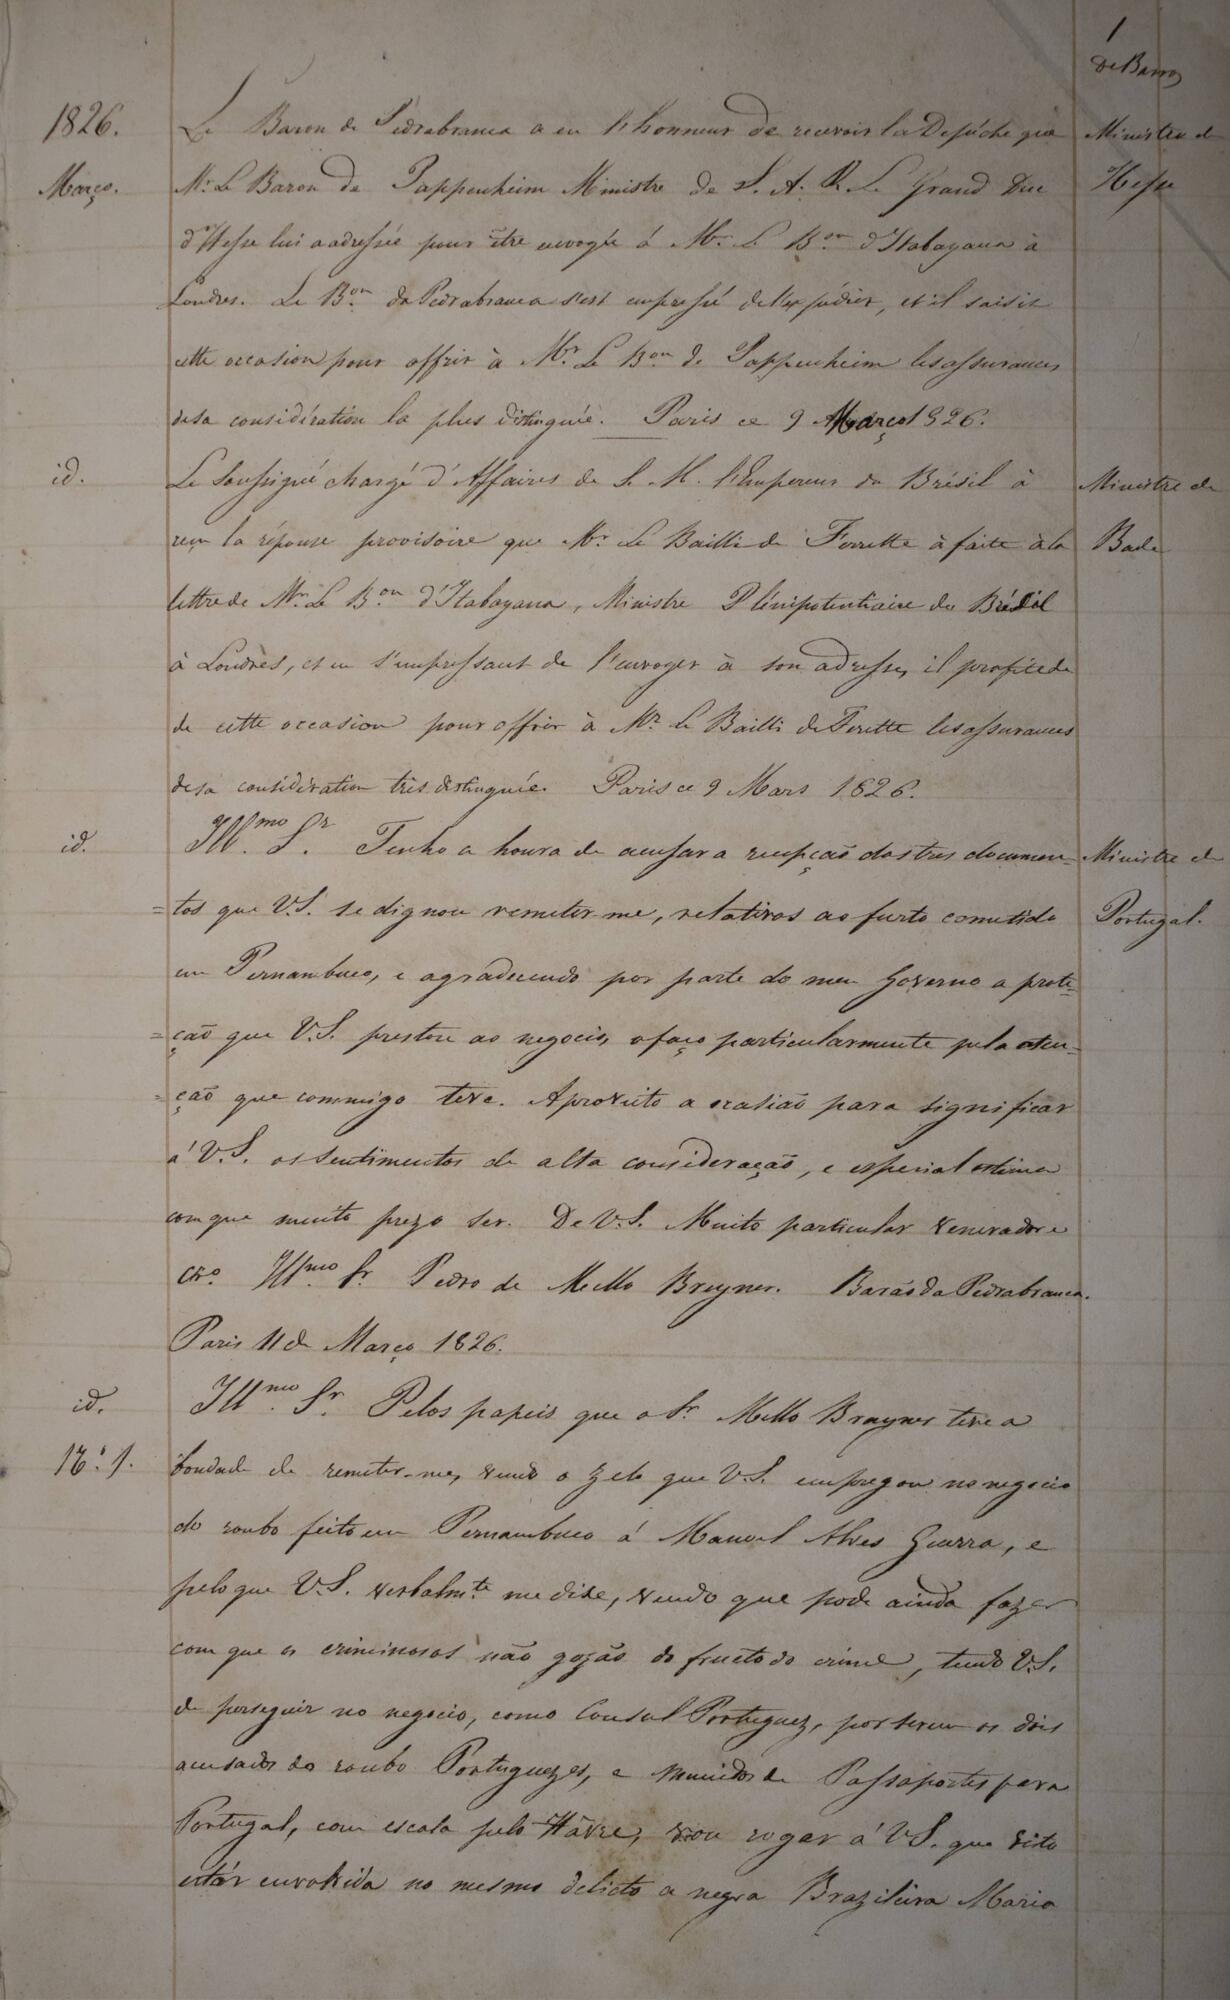 1
de Barros
1826.
Março.
Le Baron de Pedrabranca a eu l'honneur de recevoir la Depêche que
Mr. Le Baron de Pappenheim Ministre de S. A. R. Le Grand Duc
d'Hesse lui a adressée pour être envoyée à Mr. Le Bon. d'Itabayana à
Londres. Le Bon. da Pedrabranca s'est empressé de l'expédier, et il saisit
cette occasion pour offrir à Mr. Le Bon. de Pappenheim les assurances
de sa considération la plus distinguée. Paris ce 9 Março 1826.
Ministre de
Hesse
id.
Le Soussigné chargé d'Affaires de S. M. l'Empereur du Brésil à
reçu la réponse provisoire que Mr. Le Bailli de Ferrette à faite à la
lettre de Mr. Le Bon. d'Itabayana, Ministre Plénipotentiaire du Brésil
à Londres, et en s'empressant de l'envoyer à son adresse, il profite de
de cette occasion pour offrir à Mr. Le Bailli de Ferette les assurances
de sa considération très distinguée. Paris ce 9 Mars 1826.
Ministre de
Bade
id.
Illmo. Sr. Tenho a honra de acusar a recepção dos tres documen-
=tos que V.S. se dignou remeter-me, relativos ao furto cometido
em Pernambuco, e agradecendo por parte do meu Governo a prote=
=ção que V.S. prestou ao negocio, o faço particularmente pela aten=
=ção que commigo teve. Aproveito a ocasião para significar
á V.S. os sentimentos de alta consideração, e especial estima
com que muito prezo ser. De V.S. Muito particular venerador e
cro. Illmo. Sr. Pedro de Mello Breyner. Barão da Pedrabranca.
Paris 11 de Março 1826.
Ministre de
Portugal.
id.
Nº. 1.
Illmo. Sr. Pelos papeis que o Sr. Mello Brayner teve a
bondade de remeter-me, vendo o zelo que V.S. empregou no negocio
do roubo feito em Pernambuco á Manoel Alves Guerra, e
pelo que V.S. verbalmte. me dice, vendo que pode ainda fazer
com que os criminosos não gozão do fructo do crime, tendo V.S.
de perseguir no negocio, como Consul Portuguez, por serem os dois
acusados do roubo Portuguezes, e munidos de Passaportes para
Portugal, com escala pelo Hàvre, vou rogar á V.S. que visto
estár envolvida no mesmo delicto a negra Brazileira Maria